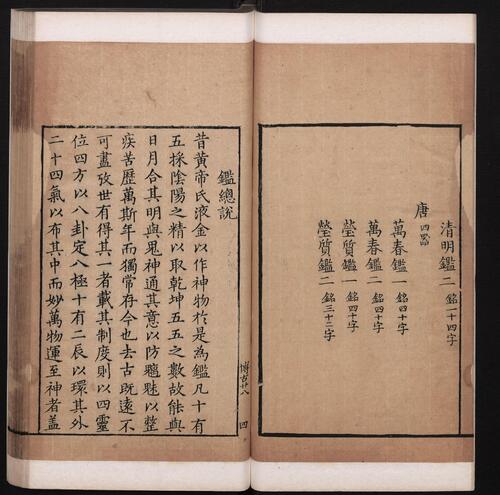 清明鑑二 銘一十四字
唐 四器
萬春鑑一 銘四十字
萬春鑑二 銘四十字
瑩質鑑一 銘四十字
瑩質鑑二 銘三十二字
博古廿八 四
鑑總說
昔黃帝氏液金以作神物於是為鑑凡十有
五採陰陽之精以取乾坤五五之數故能與
日月合其明與鬼神通其意以防魑魅以整
疾苦歷萬斯年而獨常存今也去古既遠不
可盡攷世有得其一者載其制度則以四靈
位四方以八卦定八極十有二辰以環其外
二十四氣以布其中而妙萬物運至神者蓋